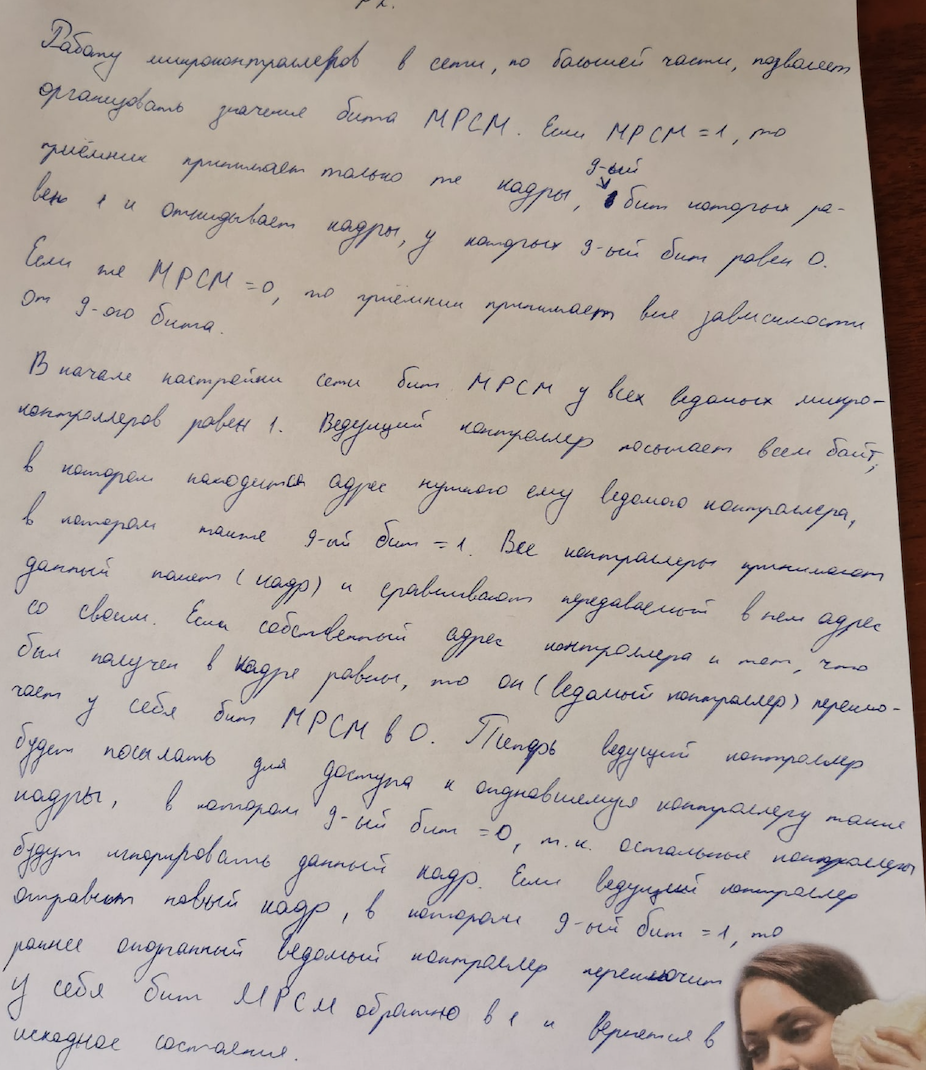 Работу микроконтроллеров в сети, по большей части, позволяет
организовать значение бита MPCM. Если MPCM = 1, то
приёмник принимает только те кадры, 9-ый бит которых ра-
вен 1 и откидывает кадры, у которых 9-ый бит равен 0.
Если же MPCM = 0, то приёмник принимает вне зависимости
от 9-ого бита.
В начале настройки сети бит MPCM у всех ведомых микро-
контроллеров равен 1. Ведущий контроллер посылает всем байт,
в котором находится адрес нужного ему ведомого контроллера,
в котором также 9-ый бит = 1. Все контроллеры принимают
данный пакет (кадр) и сравнивают передаваемый в нем адрес
со своим. Если собственный адрес контроллера и тот, что
был получен в кадре равны, то он (ведомый контроллер) переклю-
чает у себя бит MPCM в 0. Теперь ведущий контроллер
будет посылать для доступа к контроллеру такие
кадры, в котором 9-ый бит = 0, т.к. остальные контроллеры
будут игнорировать данный кадр. Если ведущий контроллер
отправит новый кадр, в котором 9-ый бит = 1, то
раннее ведомый контроллер переключит
у себя бит MPCM обратно в 1 и вернется в
исходное состояние.